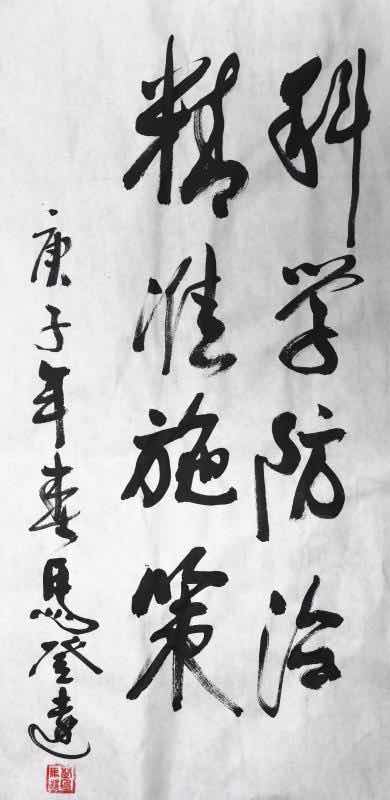 科学防治
精准施策
庚子年春马登达